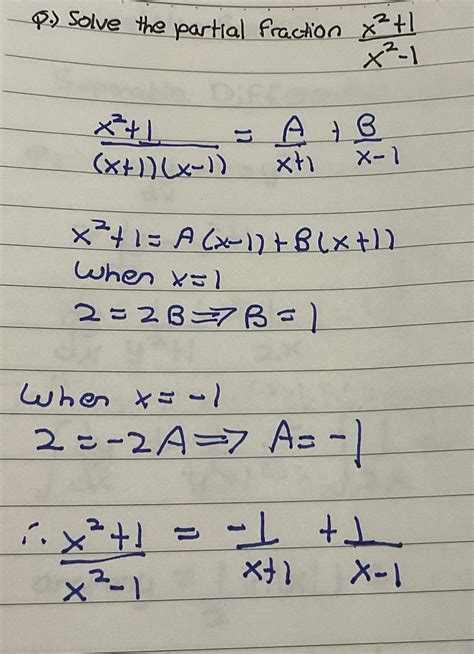 Q.) Solve the partial fraction x²+1 / x²-1
x²+1 / (x+1)(x-1) = A / x+1 + B / x-1
x²+1 = A(x-1)+B(x+1)
When x=1
2=2B⇒B=1
When x=-1
2=-2A⇒A=-1
∴ x²+1 / x²-1 = -1 / x+1 + 1 / x-1